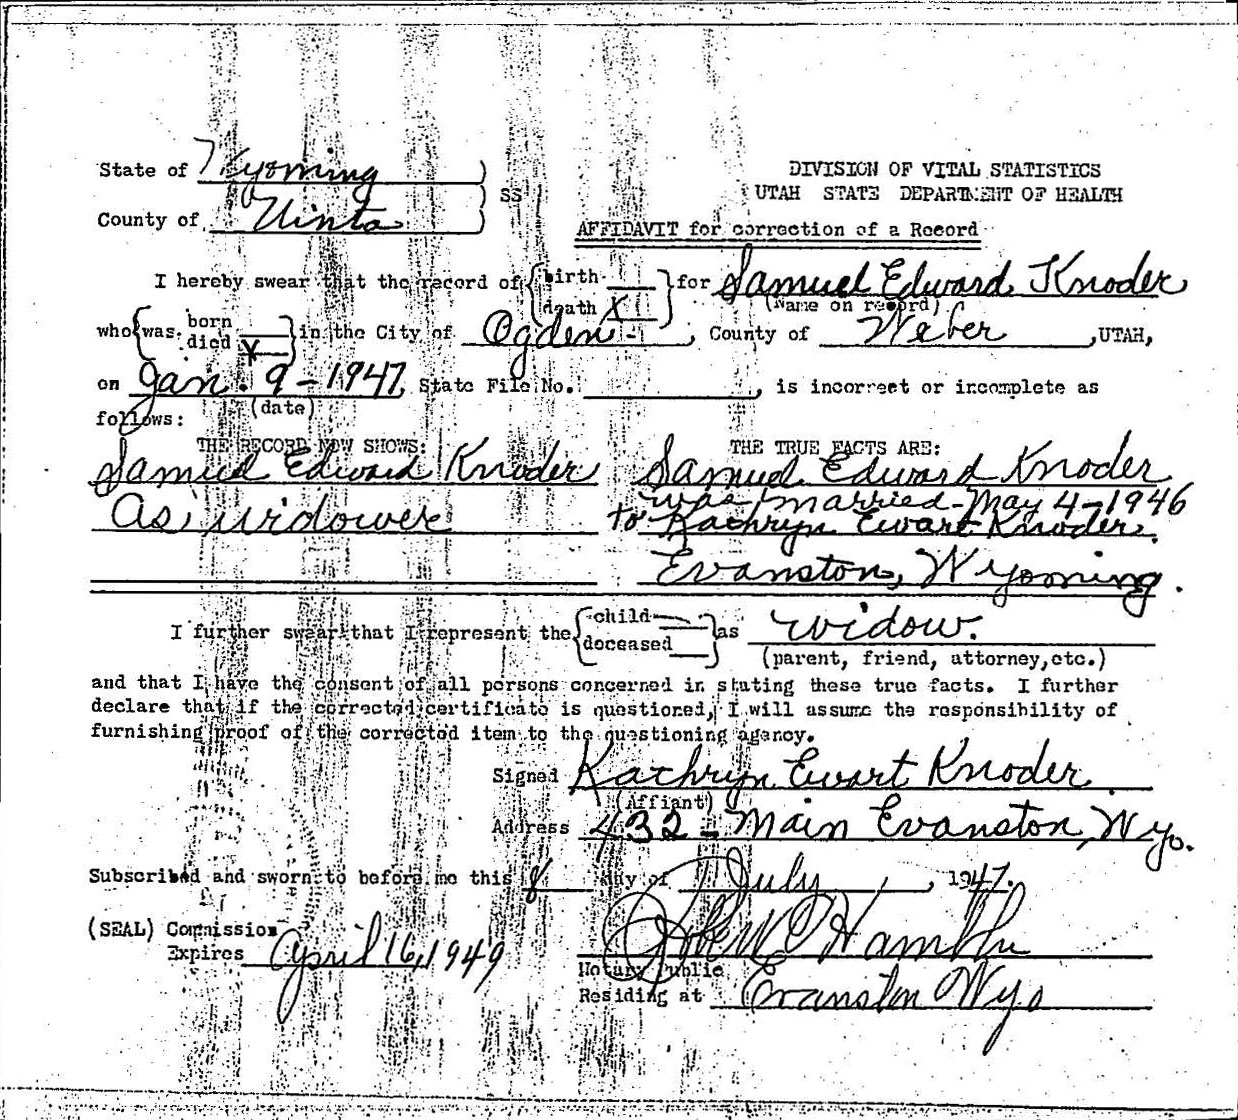 State of Wyoming
County of Uinta
SS
DIVISION OF VITAL STATISTICS
UTAH STATE DEPARTMENT OF HEALTH
AFFIDAVIT for correction of a Record
I hereby swear that the record of birth death X for Samuel Edward Knoder
(Name on record)
who was born died X in the City of Ogden, County of Weber, UTAH,
on Jan. 9-1947, State File No. , is incorrect or incomplete as
(date)
follows:
THE RECORD NOW SHOWS: THE TRUE FACTS ARE:
Samuel Edward Knoder Samuel Edward Knoder
was married-May 4-1946
As widower to Kathryn Ewart Knoder.
Evanston, Wyoming.
I further swear that I represent the child deceased as widow.
(parent, friend, attorney, etc.)
and that I have the consent of all persons concerned in stating these true facts. I further
declare that if the corrected certificate is questioned, I will assume the responsibility of
furnishing proof of the corrected item to the questioning agency.
Signed Kathryn Ewart Knoder
(Affiant)
Address 432- Main Evanston, Wyo.
Subscribed and sworn to before me this 8 day of July, 1947.
(SEAL) Commission
Expires April 16, 1949
Notary Public
Residing at Evanston Wyo